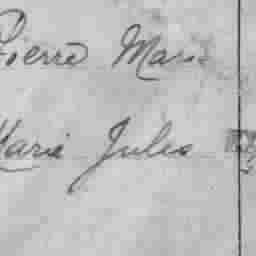 Pierre Mari
Marie Jules